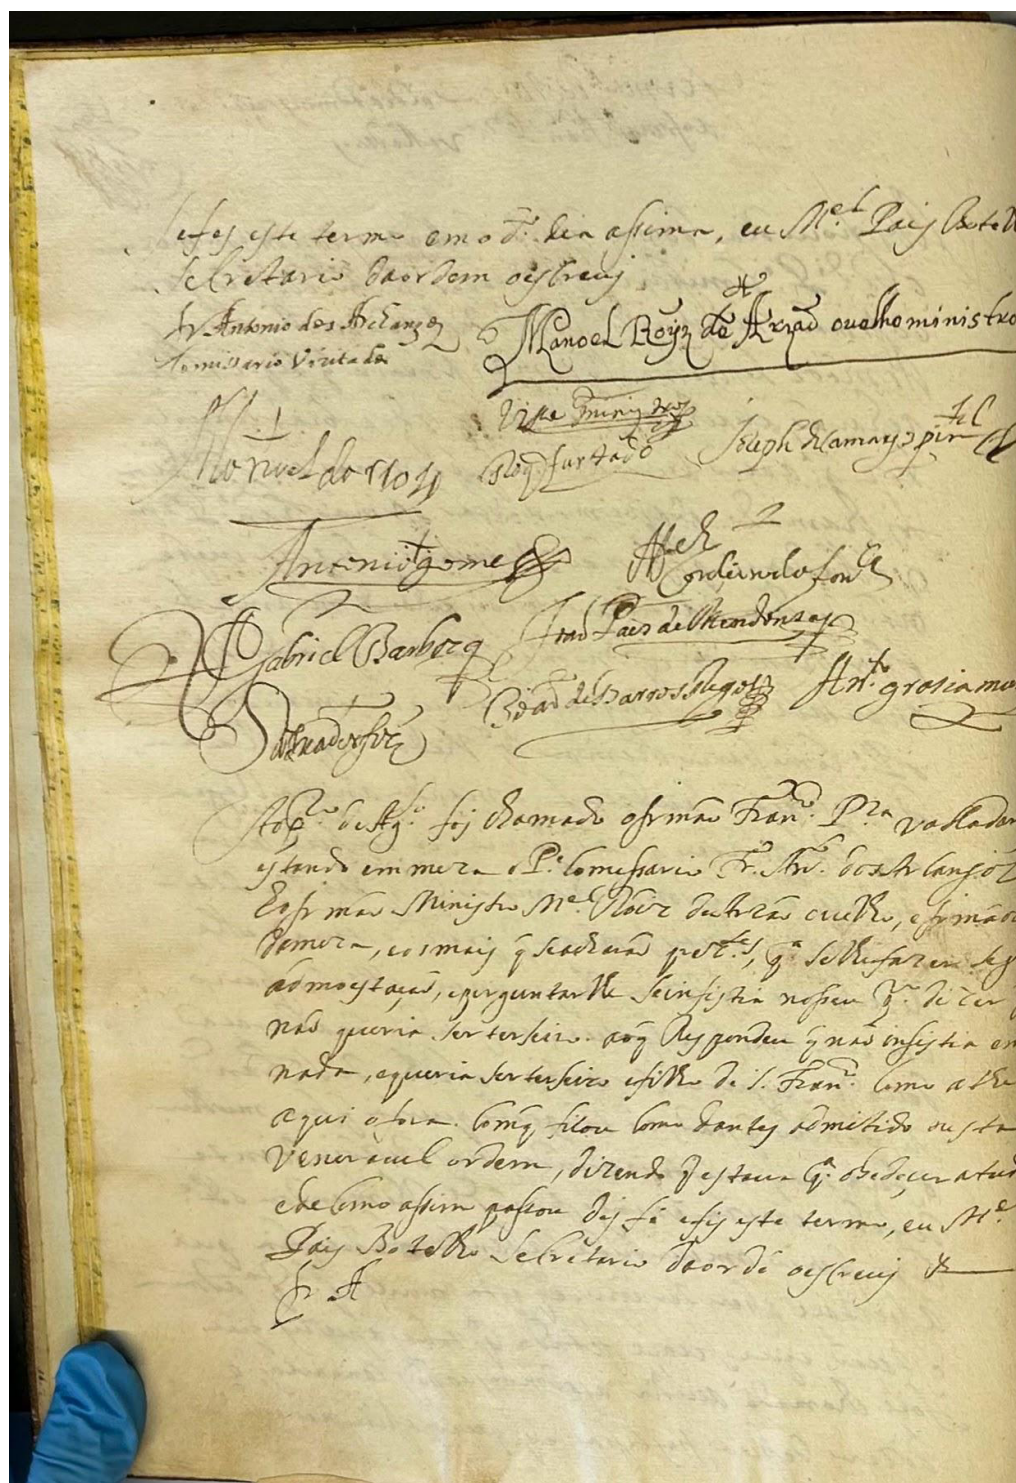 se fes este termo em o d.º dia assima, eu M.el Pais Botelh
secretario da ordem o escrevy
fr. Antonio dos Archanjos
Comissario Vizitador
Manoel Roiz de Arzaõ ovelho ministro
Vise
Manuel da
Roq furtado
Joseph de Camargo
Antonio gomes
M.el
da fon.ca
Gabriel Barboza
Joaõ Paes de Mendonza
de Barros Rego
An.to grasia
Salvador
Ao pr.º de Ag.to foj chamado o Irmaõ Fran.co P.ra Valladar
estando em meza o P.e Comessario Fr. An.to dos Arcanjos
E o Irmaõ Ministro M.el Roiz de Arzaõ o velho, e Irmaõs
da meza, e os mais q̃ se acharaõ prez.tes, p.ª se lhe fazer seg
admoestaçaõ, e perguntarlhe se insistia no seu q̃ dizer
naõ queria ser terseiro. ao q̃ Respondeu q̃ naõ insistia em
nada, e queria ser terseiro e filho de S. Fran.co como athe
aqui o fora. Com q̃ ficou como dantes admitido nesta
Veneravel ordem, dizendo q̃ estava p.ª obedeçer a tud
e de como assim passou dej fé e fis este termo, eu M.el
Pais Botelho Secretario da ordẽ o escrevy